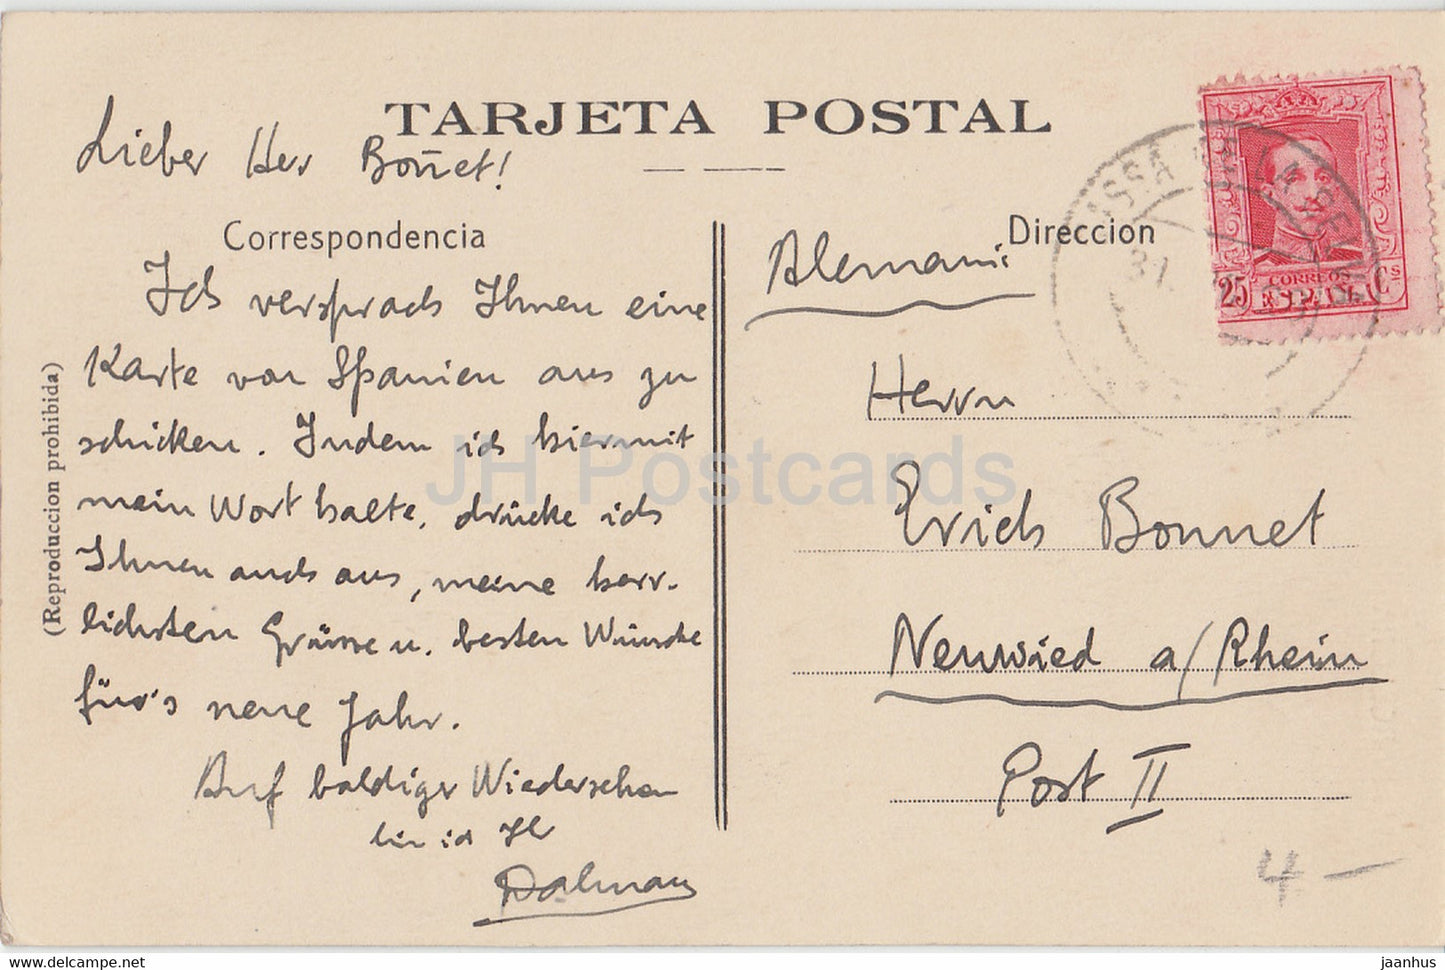 TARJETA POSTAL
Lieber Herr Bonnet!
Correspondencia
Ich versprach Ihnen eine
Karte von Spanien aus zu
schicken. Indem ich hiermit
mein Wort halte, drücke ich
Ihnen auch aus, meine herz-
lichsten Grüsse u. besten Wünsche
für's neue Jahr.
Auf baldiges Wiedersehen
bin ich Ihr
Dalmau
(Reproduccion prohibida)
Direccion
Alemania
Herrn
Erich Bonnet
Neuwied a/Rhein
Post II
4 –
25 CORREOS Cs
ESPAÑA
31
JH Postcards
www.delcampe.net
jaanhus